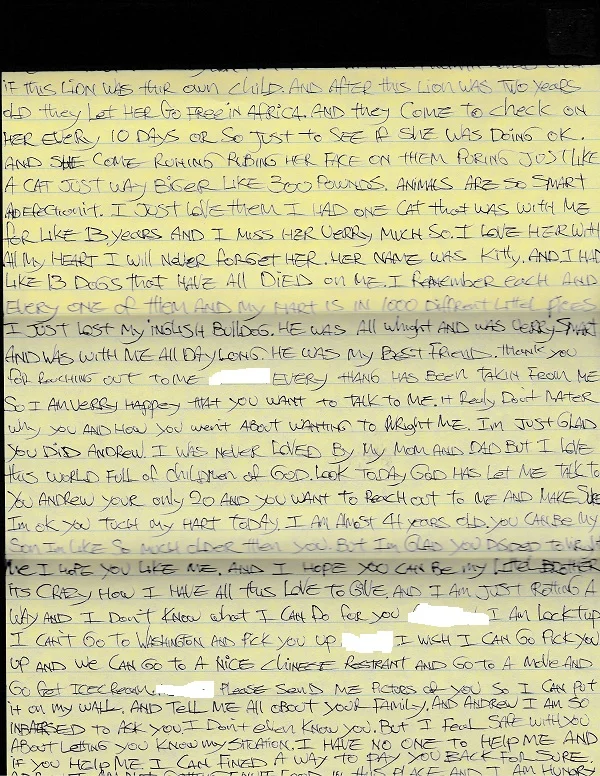 IF this LION WAS thir OWN child. AND AFTER this LION WAS TWO YEARS
OLD they LET HER GO FREE IN AFRICA. AND they COME to CHECK ON
HER EVERY 10 DAYS OR SO JUST to SEE IF SHE WAS DOING OK.
AND SHE COME RUNING RUBING HER FACE ON THEM PURING JUST LIKE
A CAT JUST WAY BIGER LIKE 300 POUNDS. ANIMALS ARE SO SMART
I JUST LOVE THEM I HAD ONE CAT that WAS WITH ME
for LIKE 13 YEARS AND I MISS HER VERRY MUCH SO. I LOVE HER WITH
All MY HEART I WILL NEVER FORGET HER. HER NAME WAS Kitty. AND I HAD
LIKE 13 DOGS that HAVE ALL DIED ON ME. I REMEMBER EACH AND
EVERY ONE OF THEM AND MY HART IS IN 1000 DIFFRENT LITTEL PIECES
I JUST LOST MY INGLISH BULLDOG. HE WAS All WHIGHT AND WAS VERRY SMART
AND WAS WITH ME All DAY LONG. HE WAS MY BEST FRIEND. THANK YOU
for REACHING OUT TO ME EVERY THANG HAS BEEN TAKIN FROM ME
SO I AM VERRY HAPPEY tHAT YOU WANT TO TALK TO ME. IT REALY DON'T MATER
WHY YOU AND HOW YOU WENT ABOUT WANTING TO WRIGHT ME. I'M JUST GLAD
YOU DID ANDREW. I WAS NEVER LOVED BY MY MOM AND DAD BUT I LOVE
this WORLD FULL OF CHILDREN OF GOD. LOOK TODAY GOD HAS LET ME TALK TO
YOU ANDREW YOUR ONLY 20 AND YOU WANT to REACH OUT to ME AND MAKE SURE
IM OK YOU TOCH MY HART TODAY. I AM Almost 41 YEARS OLD. YOU CAN BE MY
SON IM LIKE SO MUCH OLDER THEN YOU. BUT I'M GLAD YOU DISIDED TO WRIT
ME I HOPE YOU LIKE ME. AND I HOPE YOU CAN BE MY LITTEL BROTHER
ITS CRAZY HOW I HAVE All this LOVE to GIVE. AND I AM JUST ROTTING A
WAY AND I DON'T KNOW WHAT I CAN DO FOR YOU I AM LOCKT UP
I CAN'T GO TO WASHINGTON AND PICK YOU UP I WISH I CAN GO PICK YOU
UP AND WE CAN GO TO A NICE CHINESE RESTRANT AND GO TO A MOVE AND
GO GET ICECREAM... PLEASE SEND ME PICTORS OF YOU SO I CAN PUT
it ON MY WALL. AND TELL ME All ABOUT YOUR FAMILY. AND ANDREW I AM SO
TO ASK YOU I DON'T EVEN KNOW YOU. BUT I FEAL SAFE WITH YOU
ABOUT LETTING YOU KNOW MY SITUATION. I HAVE NO ONE TO HELP ME AND
IF YOU HELP ME. I CAN FINED A WAY to PAY YOU BACK FOR SURE
IN THIS PLACE AND I AM HUNGRY